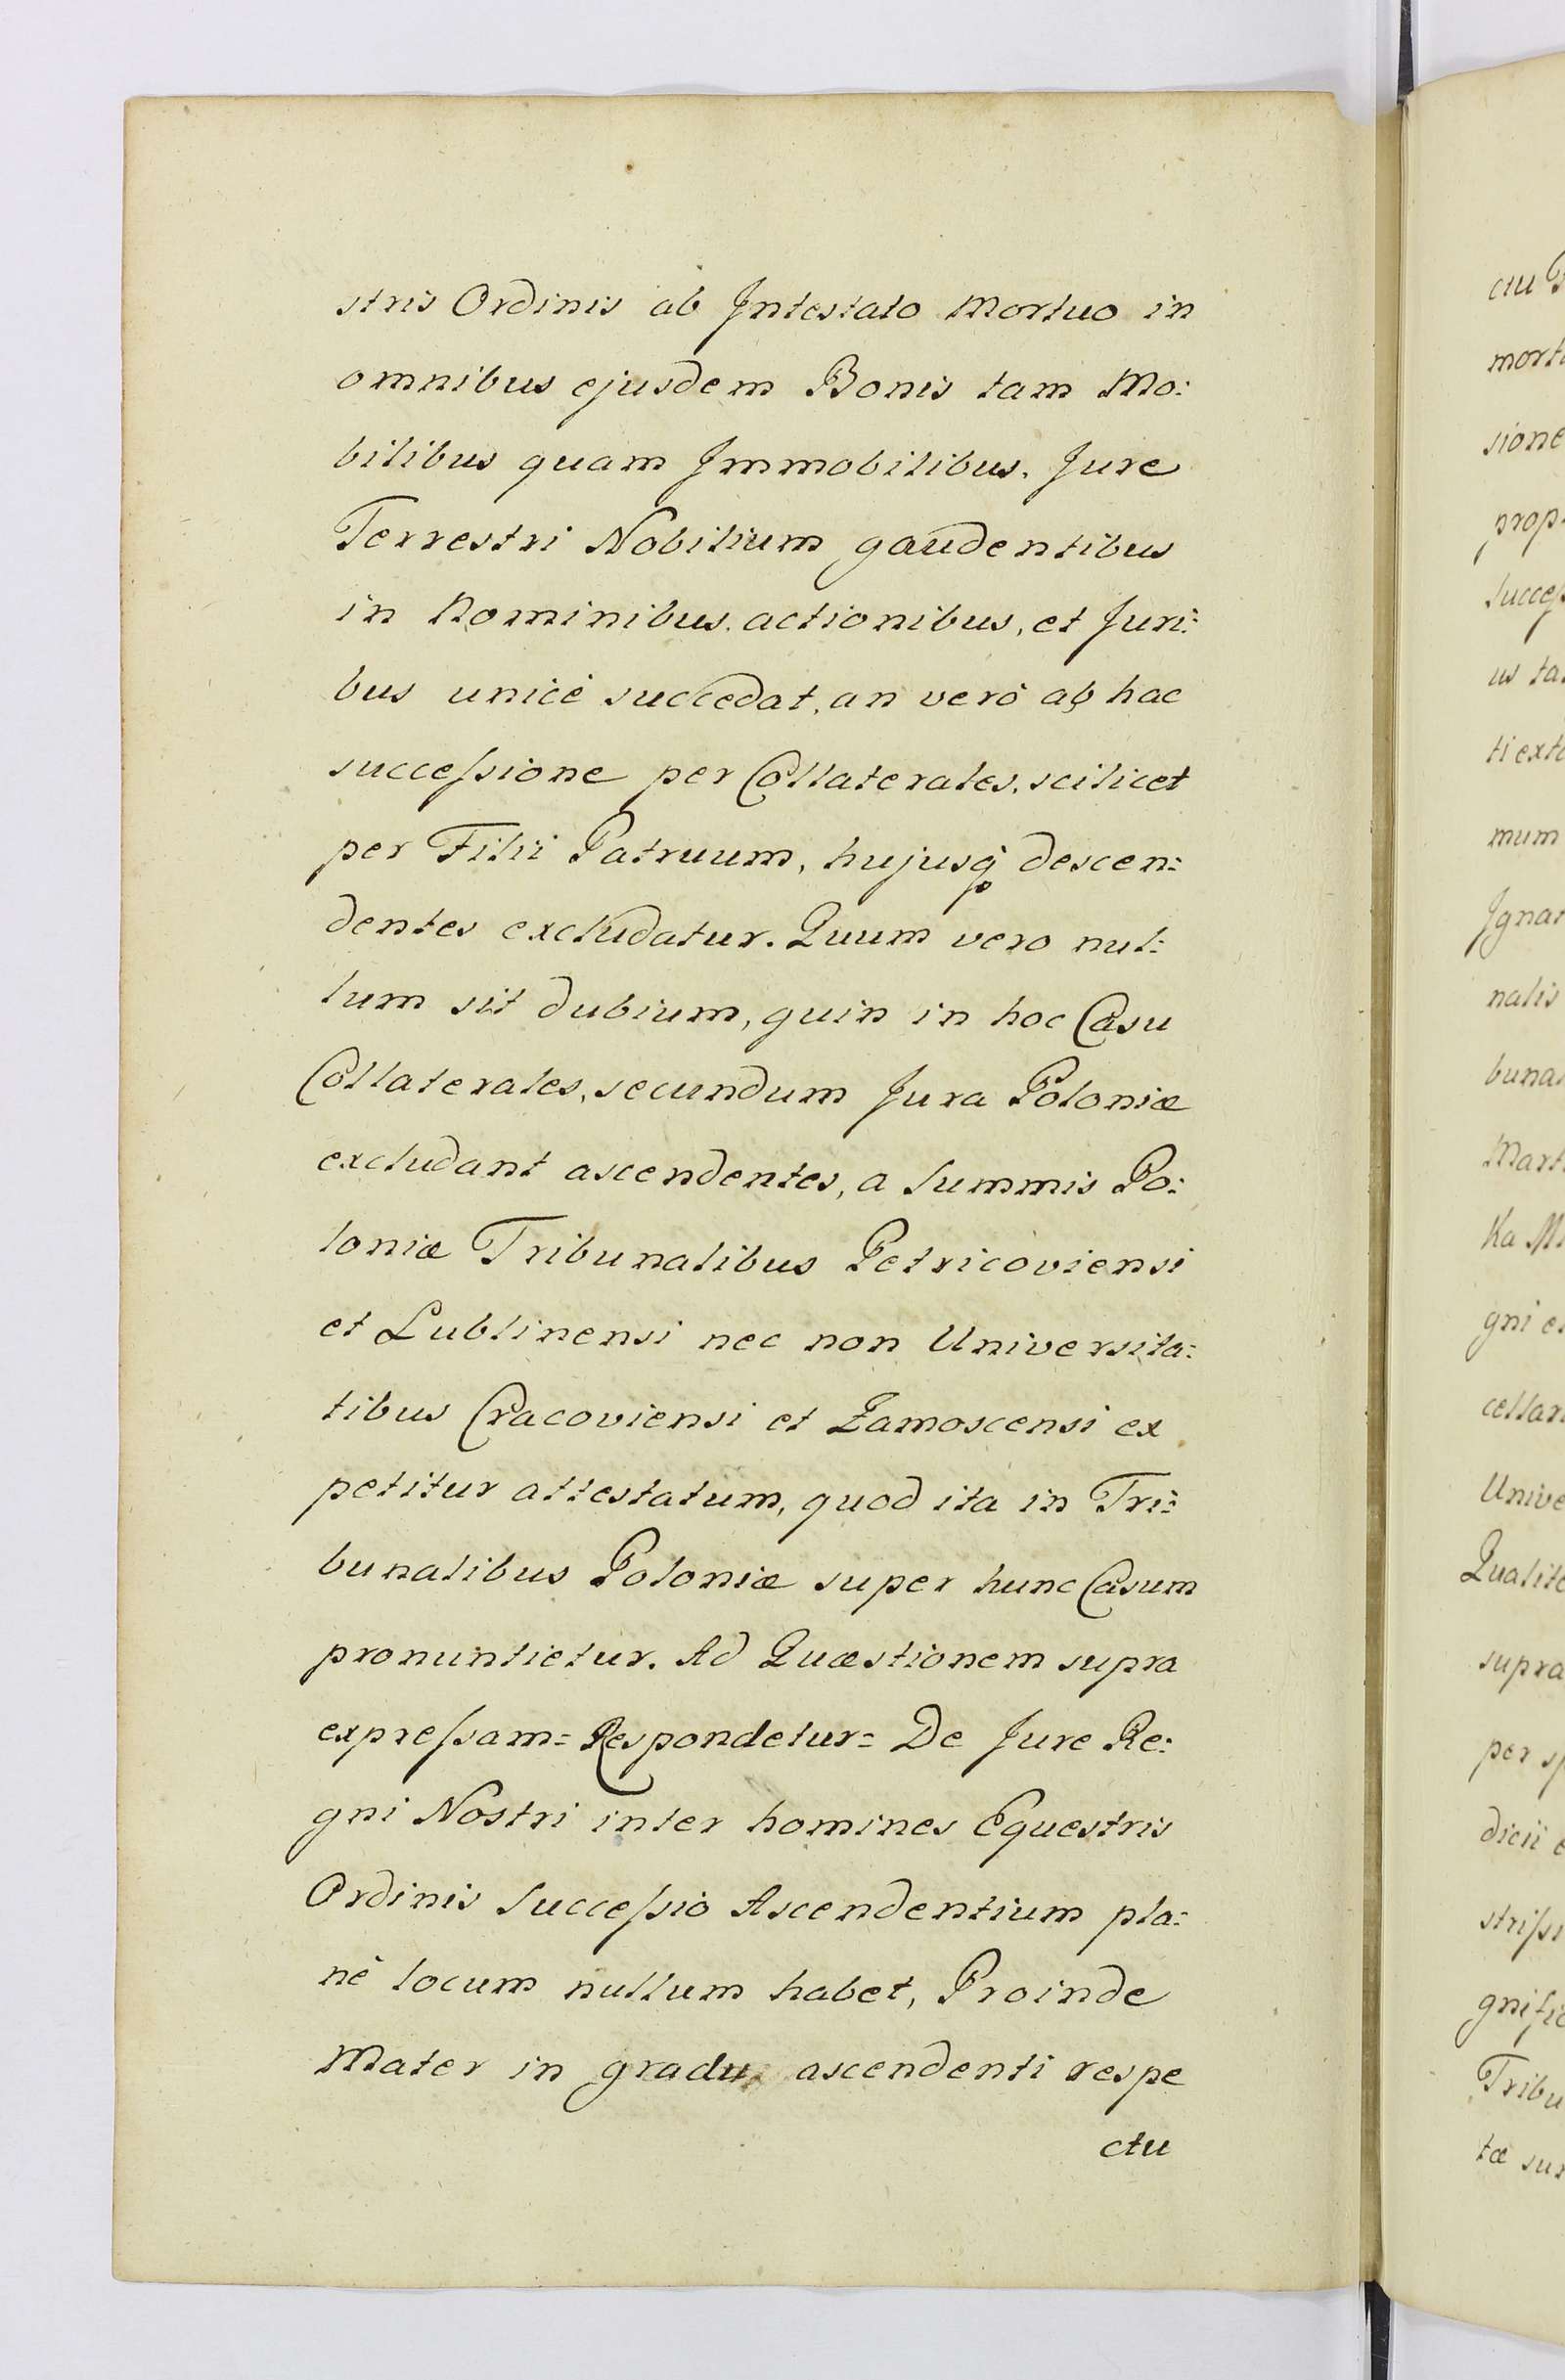 stris Ordinis ab Intestato Mortuo in
omnibus ejusdem Bonis tam Mo:
bilibus quam Immobilibus, Jure
Terrestri Nobilium gaudentibus
in Nominibus, actionibus, et Juri:
bus unicè succedat, an verò ab hac
successione per Collaterales, scilicet
per Filii Patruum, hujusq̃ descen:
dentes excludatur. Quum vero nul:
lum sit dubium, quin in hoc Casu
Collaterales, secundum Jura Poloniæ
excludant ascendentes, a Summis Po:
loniæ Tribunalibus Petricoviensi
et Lublinensi nec non Universita:
tibus Cracoviensi et Zamoscensi ex
petitur attestatum, quod ita in Tri:
bunalibus Poloniæ super hunc Casum
pronuntietur. Ad Quæstionem supra
expressam= Respondetur= De Jure Re:
gni Nostri inter homines Equestris
Ordinis Successio Ascendentium pla:
nè locum nullum habet, Proinde
Mater in gradu ascendenti respe
ctu
ctu
mort
sione
prop
Success
us ta
ti exta
mum
Ignat
nalis
bunal
Mart
Ka M
gni e
cellar
Unive
Qualit
supra
per sp
dicii e
strissi
gnific
Tribu
tæ sur